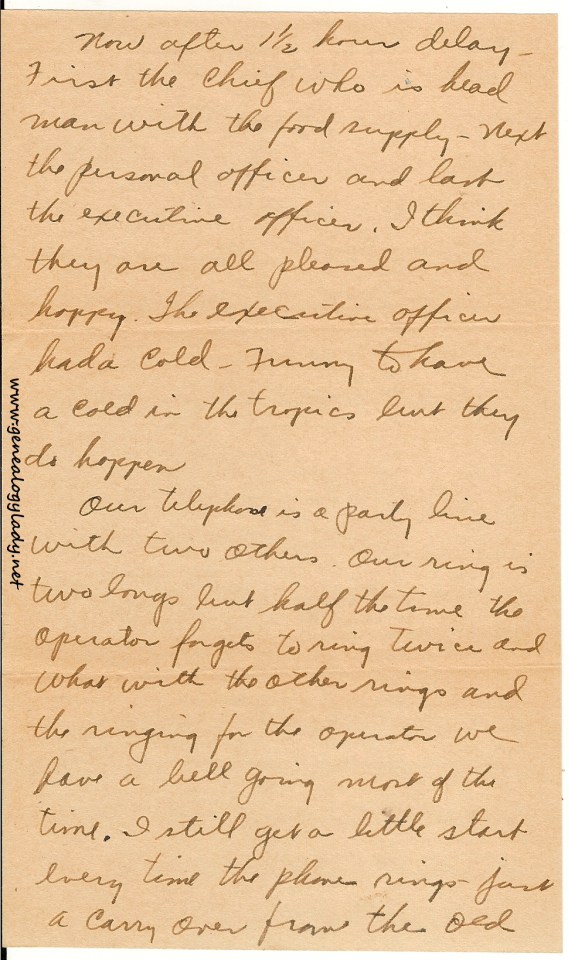 Now after 1½ hour delay –
First the Chief who is head
man with the food supply – Next
the personal officer and last
the executive officer. I think
they are all pleased and
happy. The executive officer
had a cold – Funny to have
a cold in the tropics but they
do happen
Our telephone is a party line
with two others. Our ring is
two longs but half the time the
operator forgets to ring twice and
what with the other rings and
the ringing for the operator we
have a bell going most of the
time. I still get a little start
every time the phone rings – just
a carry over from the old
www.genealogylady.net